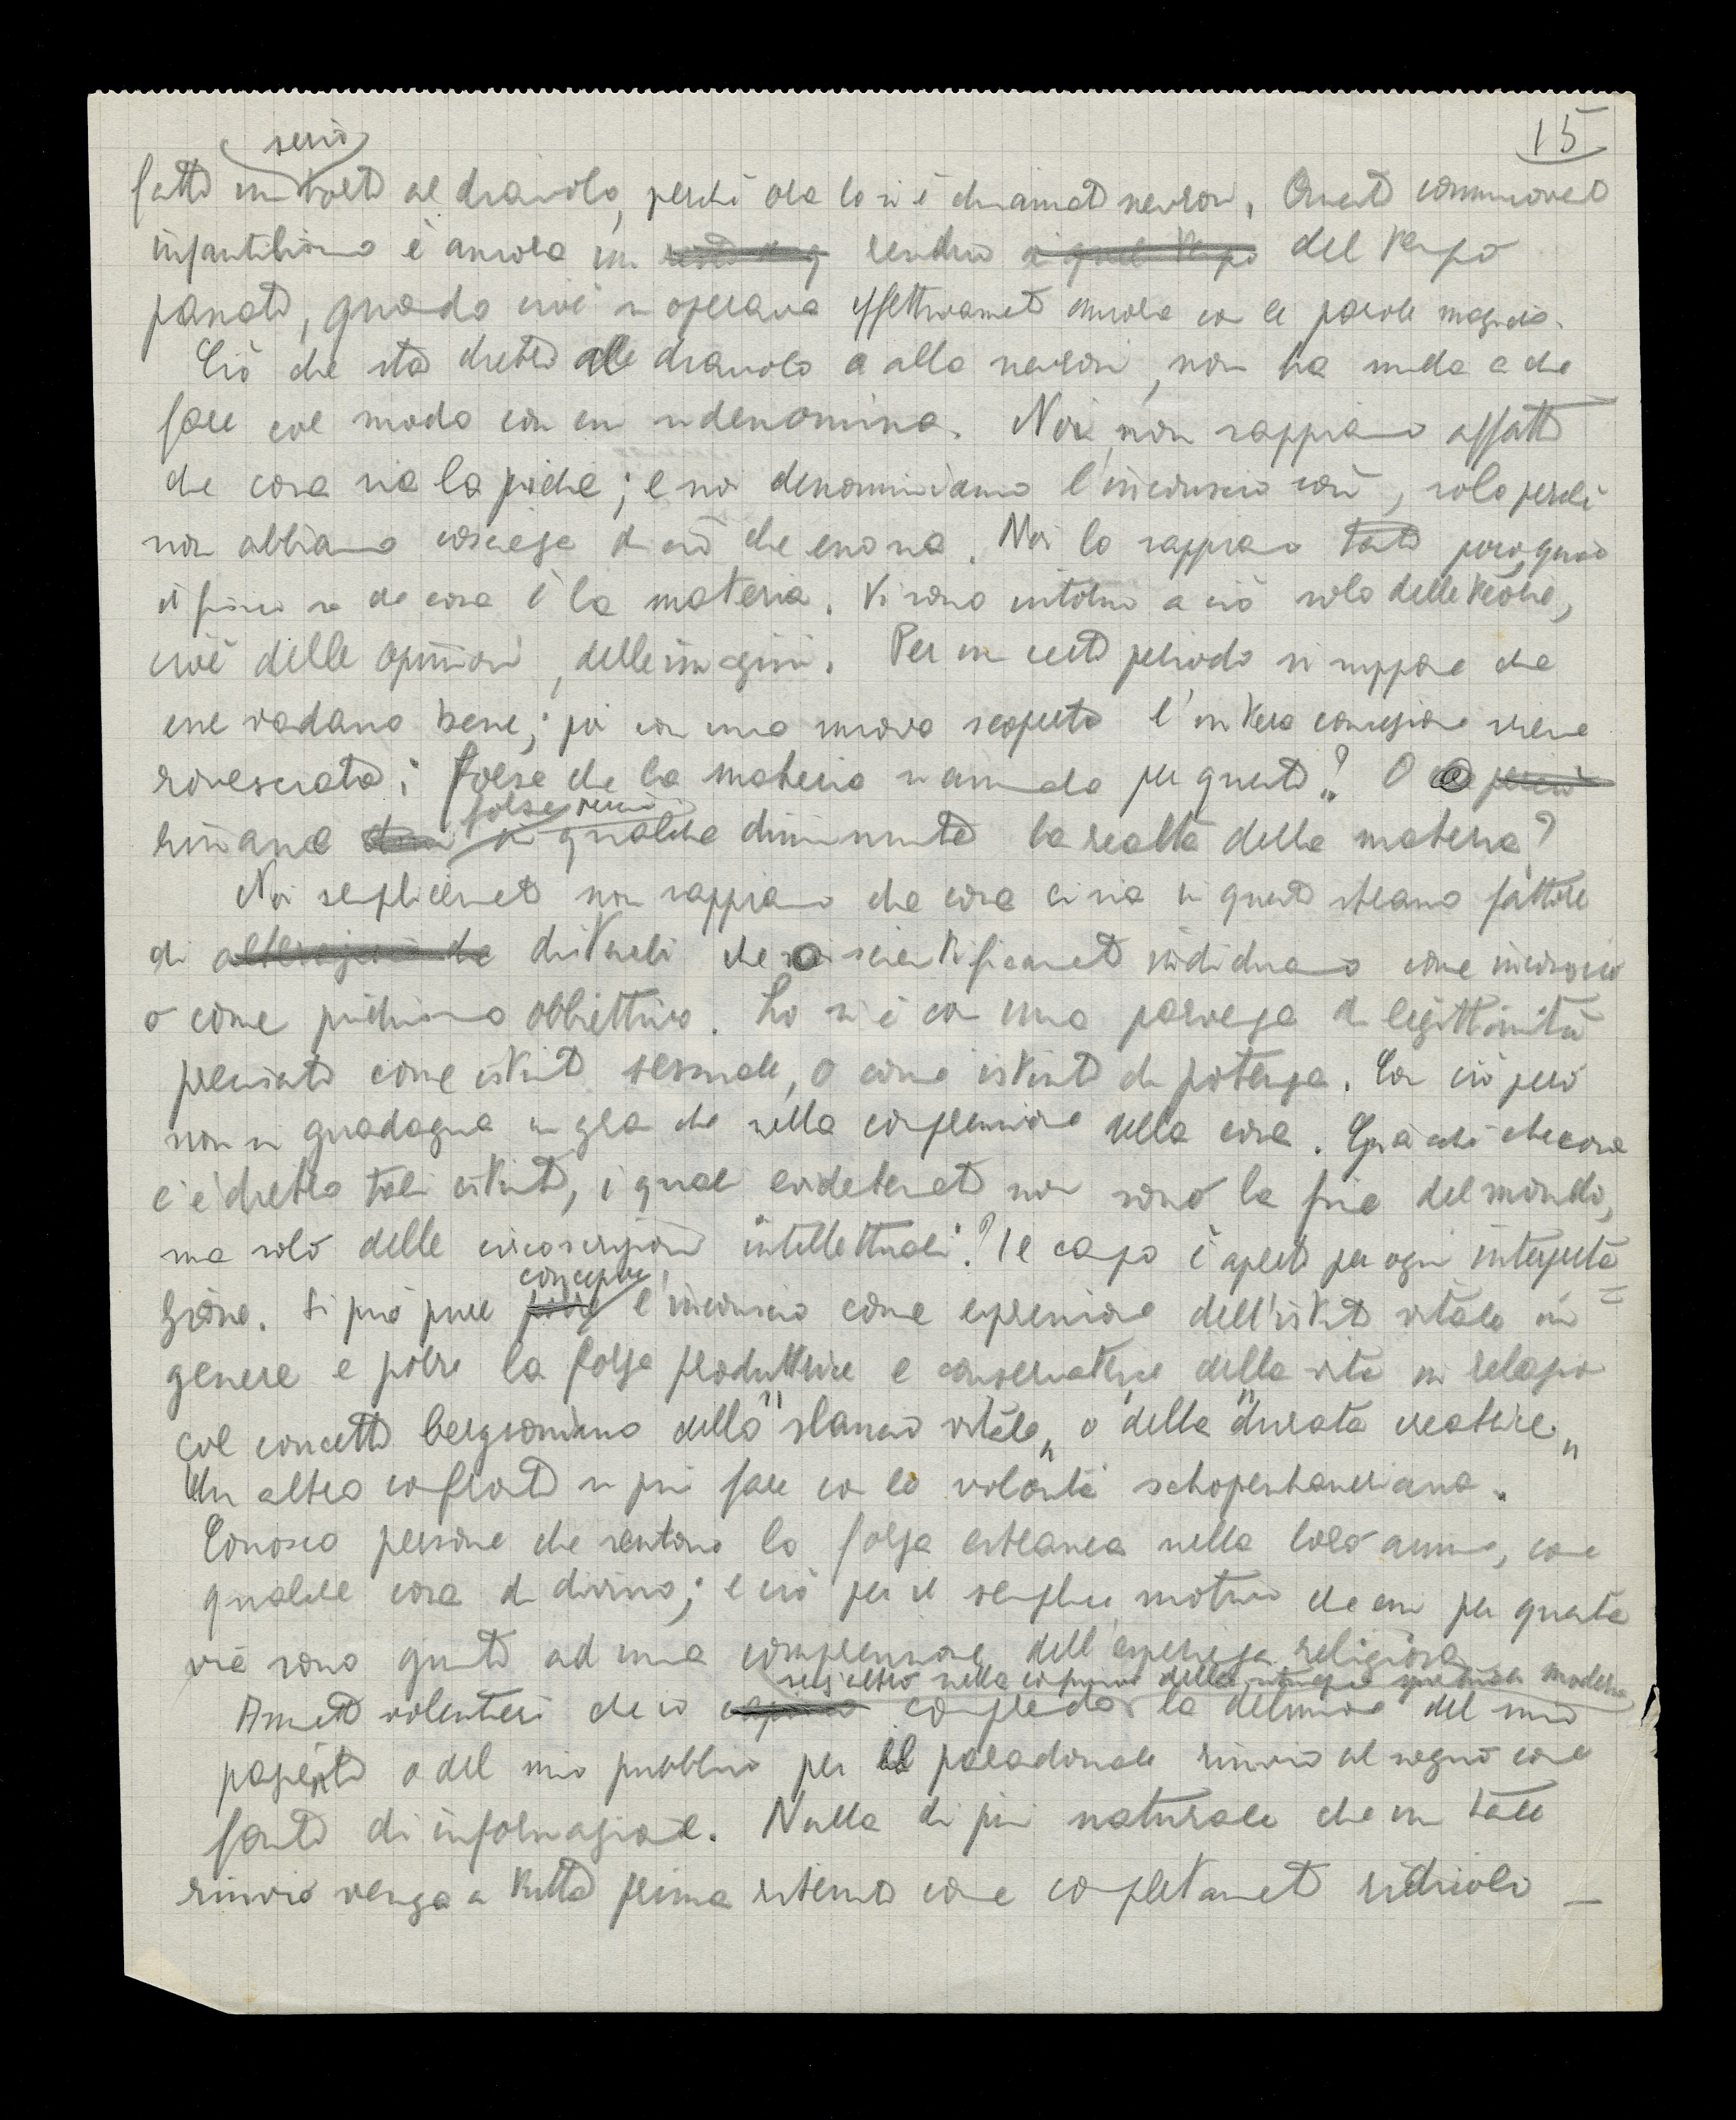 15
serio
fatto un torto al diavolo, perché ora lo si è chiamato nevrosi. Questo commovente
infantilismo è ancora un residuo a quel tempo del tempo
passato, quando cioè si operava effettivamente ancora con le parole magiche.
Ciò che sta dietro al diavolo o alla nevrosi, non ha nulla a che
fare col modo con cui si denomina. Noi non sappiamo affatto
che cosa sia la psiche; e noi denominiamo l'inconscio così, solo perché
non abbiamo coscienza di ciò che esso sia. Noi lo sappiamo tanto poco, quanto
il fisico sa che cosa è la materia. Vi sono intorno a ciò solo delle teorie,
cioè delle opinioni, delle imagini. Per un certo periodo si suppone che
esse vadano bene; poi con una nuova scoperta l'intera concezione viene
rovesciata; forse che la materia si annulla per questo? O perciò
forse perciò
rimane in qualche diminuita la realtà della materia?
Noi semplicemente non sappiamo che cosa ci sia in questo strano fattore
di alterazioni che disturbi che noi scientificamente individuiamo come inconscio
o come psichismo obbiettivo. Lo si è con una parvenza di legittimità
precisato come istinto sessuale, o come istinto di potenza. Con ciò però
non si guadagna un gran che nella comprensione della cosa. Giacché che cosa
c'è dietro tali istinti, i quali evidentemente non sono la fine del mondo,
ma solo delle circoscrizioni intellettuali? Il campo è aperto per ogni interpreta=
concepire
zione. Si può pure porre l'inconscio come espressione dell'istinto vitale in
genere e porre la forza produttrice e conservatrice della vita in relazione
col concetto bergsoniano dello "slancio vitale" o della "durata creatrice"
Un altro confronto si può fare con la volontà schopenhaueriana.
Conosco persone che sentono la forza estranea nella loro anima, come
qualche cosa di divino; e ciò per il semplice motivo che essi per questa
via sono giunti ad una comprensione dell'esperienza religiosa
senz'altro nella confusione della situazione spirituale moderna
Ammetto volentieri che io capisco comprendo la delusione del mio
paziente o del mio pubblico per il paradossale rinvio al sogno come
fonte di informazione. Nulla di più naturale che un tale
rinvio venga a tutta prima ritenuto come completamente ridicolo —